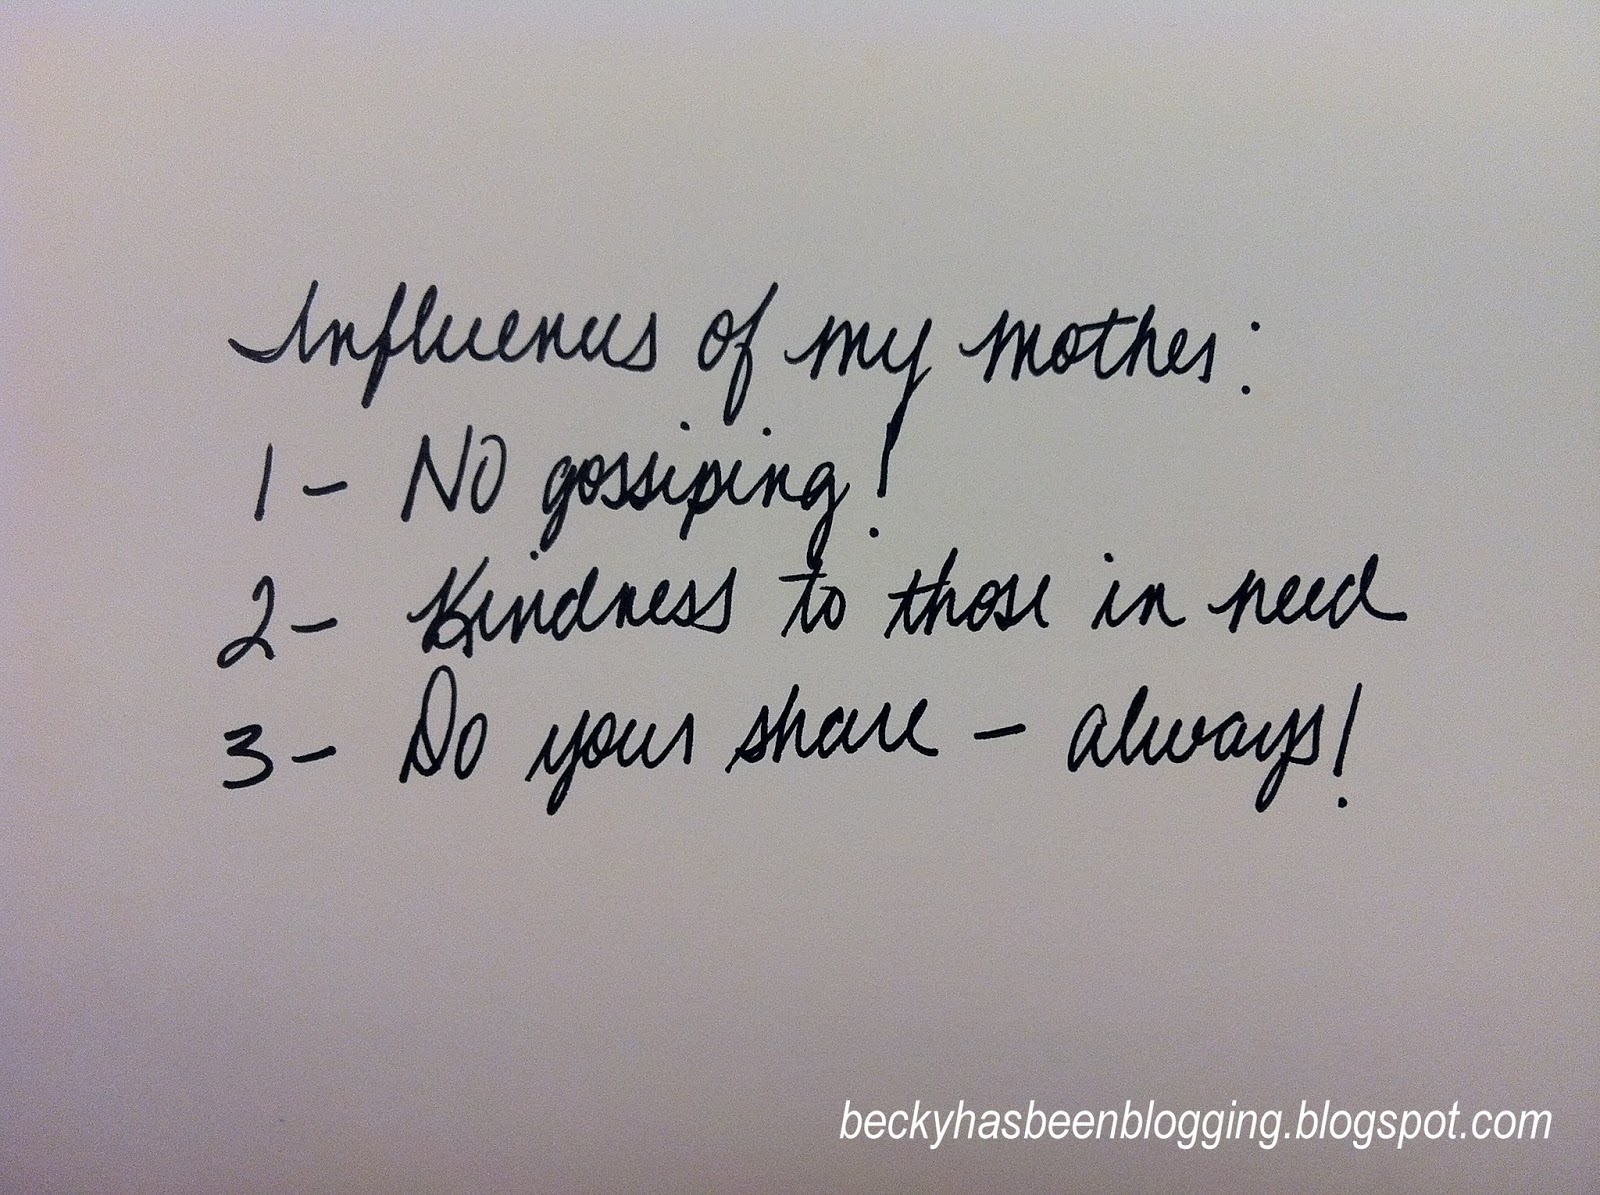 Influences of my mother:
1- No gossiping!
2- Kindness to those in need
3- Do your share - always!
beckyhasbeenblogging.blogspot.com